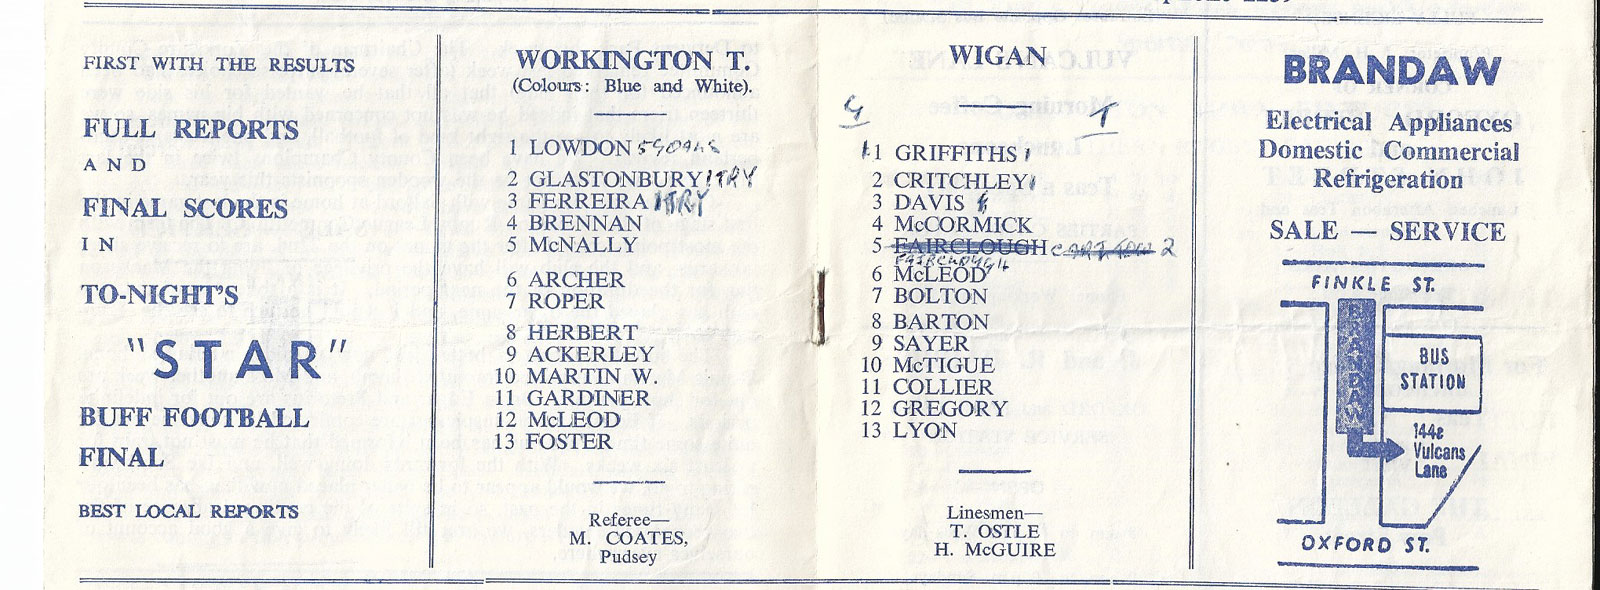 FIRST WITH THE RESULTS
FULL REPORTS
AND
FINAL SCORES
IN
TO-NIGHT'S
"STAR"
BUFF FOOTBALL
FINAL
BEST LOCAL REPORTS
WORKINGTON T.
(Colours: Blue and White).
1 LOWDON 5 GOALS
2 GLASTONBURY 1 TRY
3 FERREIRA 1 TRY
4 BRENNAN
5 McNALLY
6 ARCHER
7 ROPER
8 HERBERT
9 ACKERLEY
10 MARTIN W.
11 GARDINER
12 McLEOD
13 FOSTER
Referee—
M. COATES,
Pudsey
WIGAN
G T
1 1 GRIFFITHS 1
2 CRITCHLEY 1
3 DAVIS
4 McCORMICK
5 FAIRCLOUGH 2
FAIRCLOUGH
6 McLEOD
7 BOLTON
8 BARTON
9 SAYER
10 McTIGUE
11 COLLIER
12 GREGORY
13 LYON
Linesmen—
T. OSTLE
H. McGUIRE
BRANDAW
Electrical Appliances
Domestic Commercial
Refrigeration
SALE — SERVICE
FINKLE ST.
BRANDAW
BUS
STATION
144e
Vulcans
Lane
OXFORD ST.